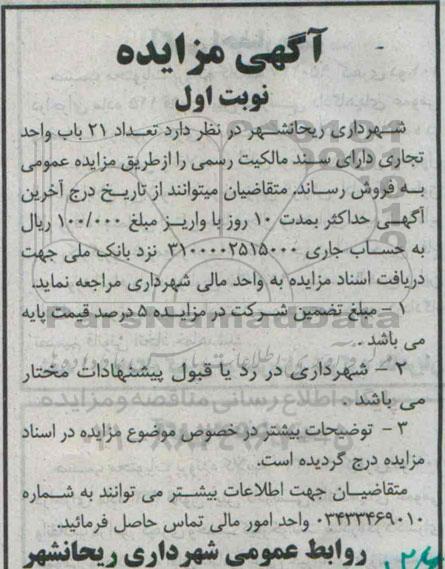 آگهی مزایده
نوبت اول
شهرداری ریحانشهر در نظر دارد تعداد ۲۱ باب واحد
تجاری دارای سند مالکیت رسمی را ازطریق مزایده عمومی
به فروش رساند. متقاضیان میتوانند از تاریخ درج آخرین
آگهی حداکثر بمدت ۱۰ روز با واریز مبلغ ۱۰۰/۰۰۰ ریال
به حساب جاری ۳۱۰۰۰۰۲۵۱۵۰۰۰ نزد بانک ملی جهت
دریافت اسناد مزایده به واحد مالی شهرداری مراجعه نماید.
۱ – مبلغ تضمین شرکت در مزایده ۵ درصد قیمت پایه
می باشد .
ParsNamadData
۲ – شهرداری در رد یا قبول پیشنهادات مختار
می باشد .
۳ – توضیحات بیشتر در خصوص موضوع مزایده در اسناد
مزایده درج گردیده است.
متقاضیان جهت اطلاعات بیشتر می توانند به شماره
۰۳۴۳۳۴۶۹۰۱۰ واحد امور مالی تماس حاصل فرمائید.
روابط عمومی شهرداری ریحانشهر